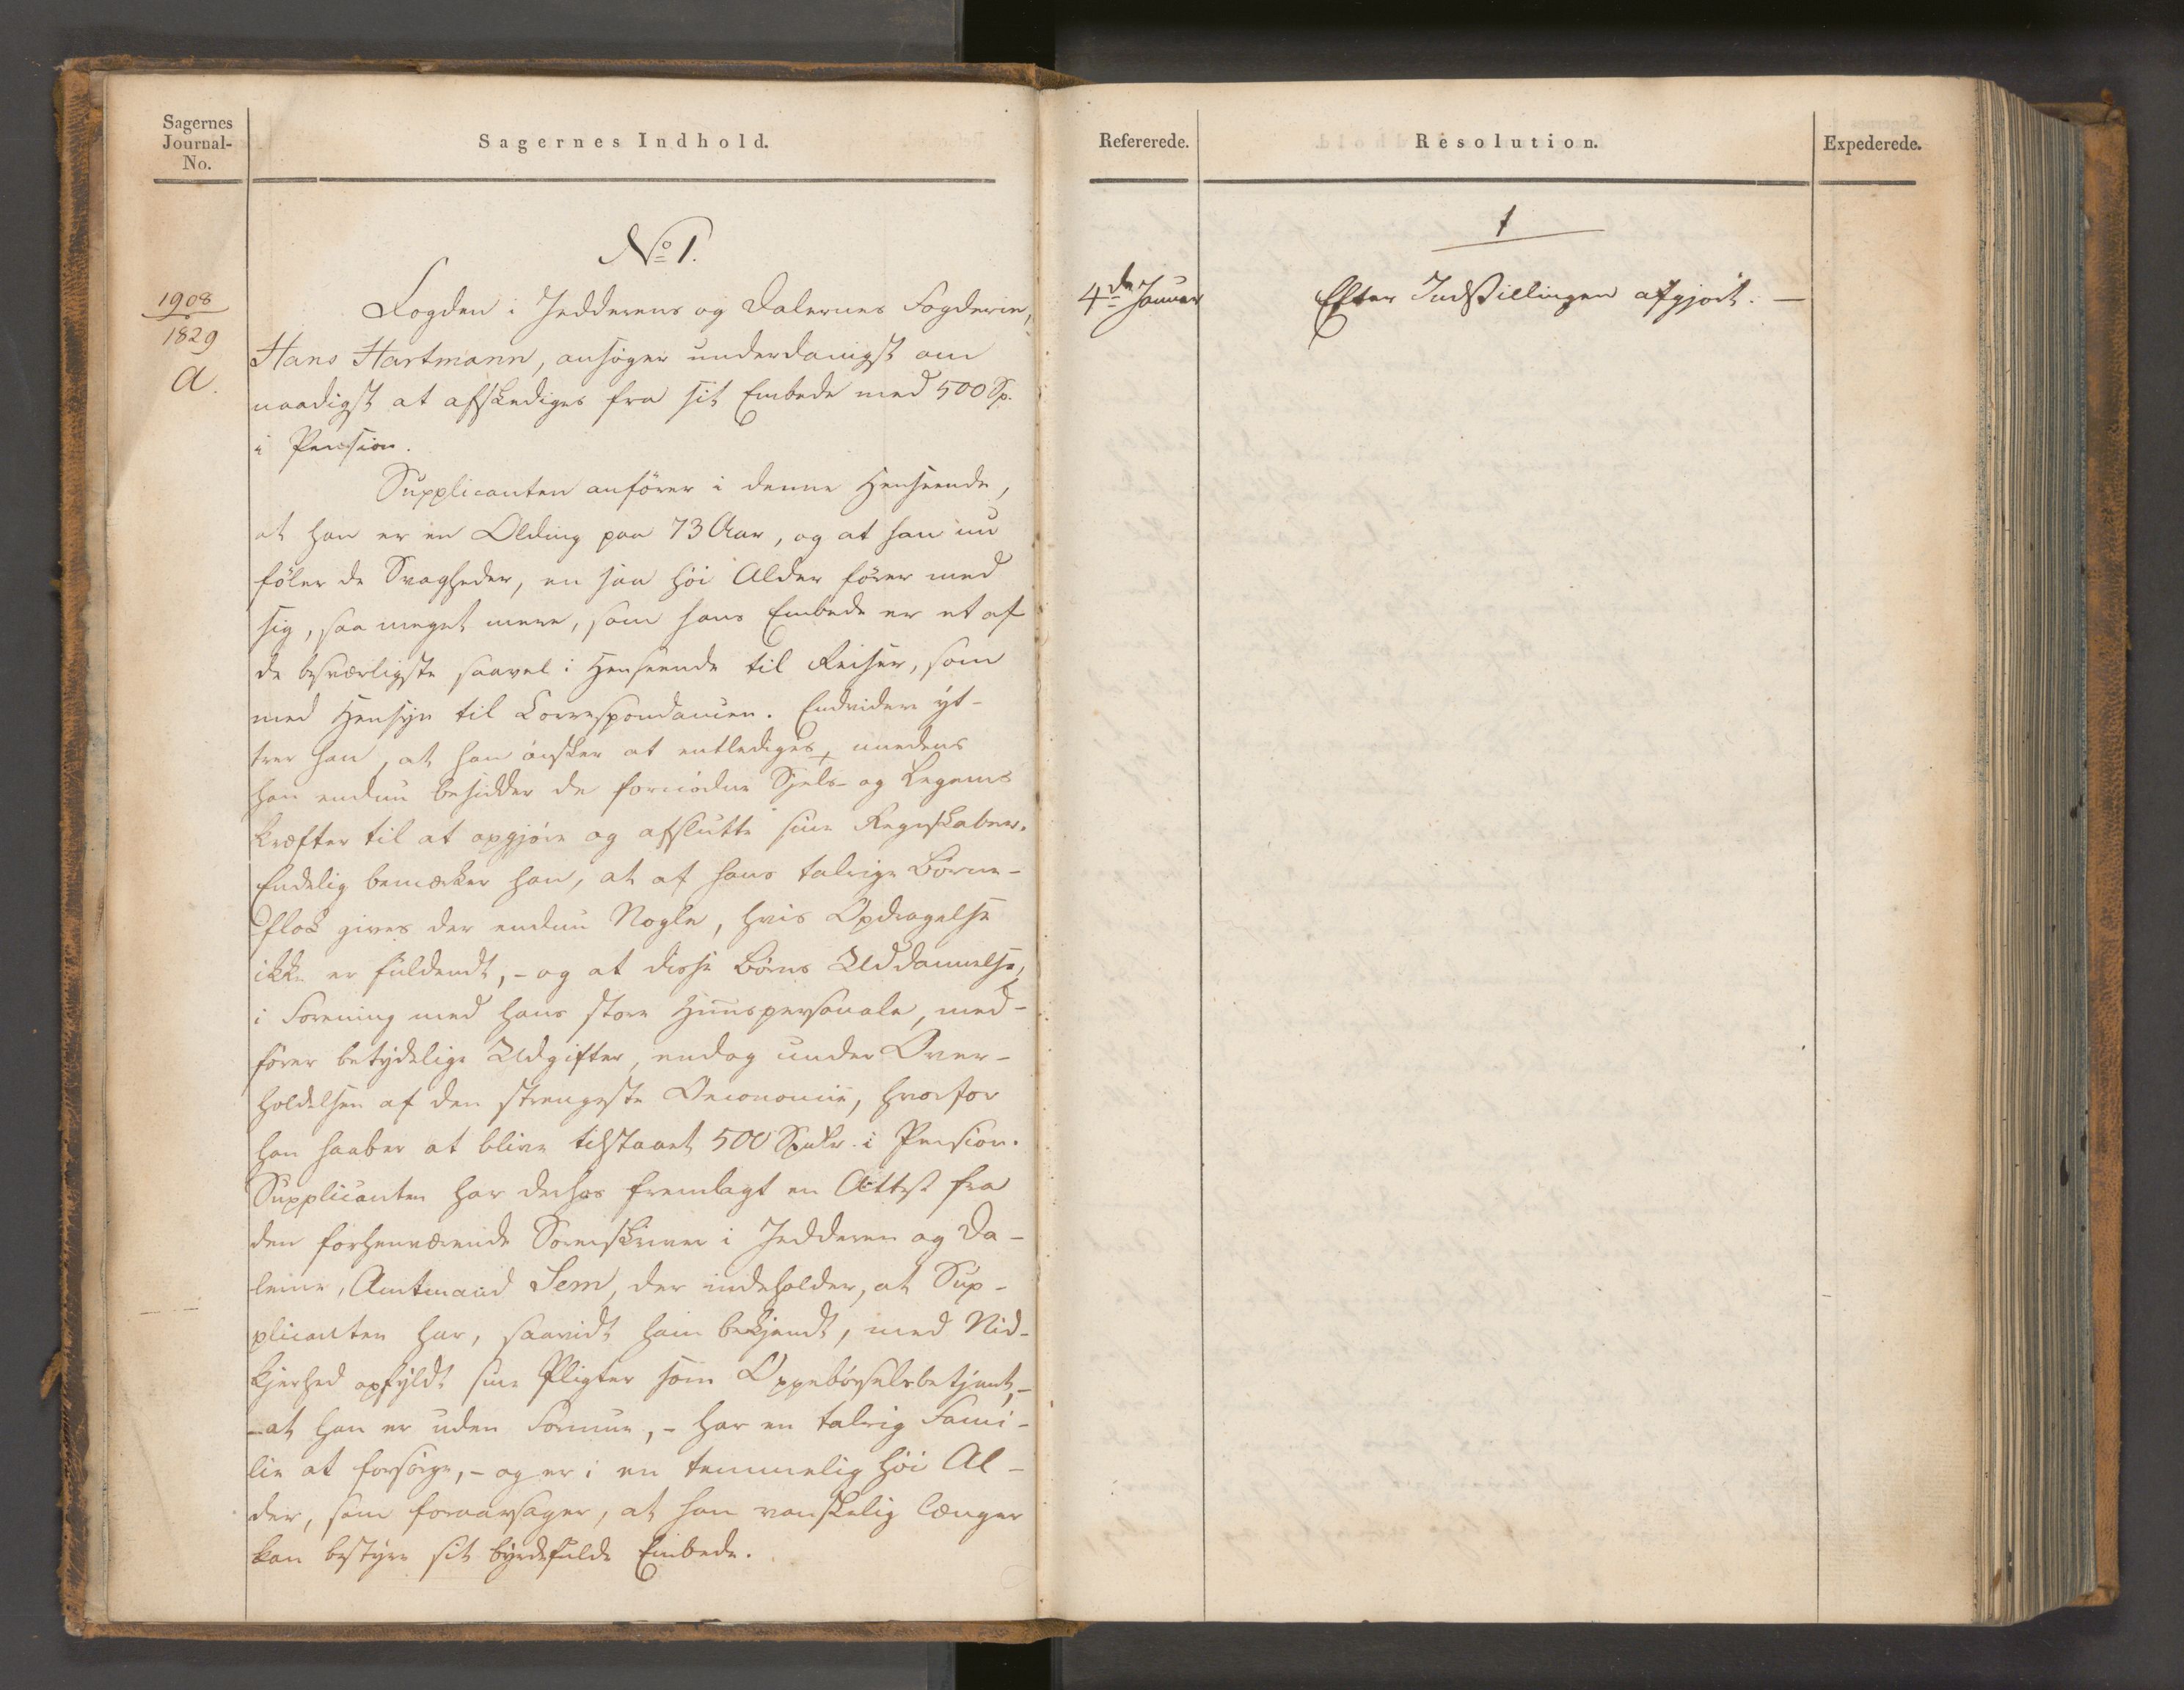 Sagernes
Journal-
No.
Sagernes Indhold.
No 1.
1908
1829
A.
Fogden i Jedderens og Dalernes Fogderie,
Hans Hartmann, ansøger underdanigst om
naadigst at afskediges fra sit Embede med 500 Sp.
i Pension.
Supplicanten anfører i denne Henseende,
at han er en Olding paa 73 Aar, og at han nu
føler de Svagheder, en saa høi Alder fører med
sig, saa meget mere, som hans Embede er et af
de besværligste saavel i Henseende til Reiser, som
med Hensyn til Correspondancen. Endvidere yt-
trer han, at han ønsker at entlediges, medens
han endnu besidder de fornødne Sjels- og Legems
kræfter til at opgjøre og afslutte sine Regnskaber.
Endelig bemærker han, at af hans talrige Børne-
flok gives der endnu Nogle, hvis Opdragelse
ikke er fuldendt, - og at disse Børns Uddannelse,
i Forening med hans store Huuspersonale, med-
fører betydelige Udgifter, endog under Over-
holdelsen af den strengeste Oeconomie, hvorfor
han haaber at blive tilstaaet 500 Spdlr. i Pension.
Supplicanten har derhos fremlagt en Attest fra
den forhenværende Sorenskriver i Jedderen og Da-
lerne, Amtmand Sem, der indeholder, at Sup-
plicanten har, saavidt ham bekjendt, med Nid-
kjerhed opfyldt sine Pligter som Oppebørselsbetjent, -
- at han er uden Formue, - har en talrig Fami-
lie at forsørge, - og er i en temmelig høi Al-
der, som foraarsager, at han vanskelig længer
kan bestyre sit byrdefulde Embede.
Refererede.
Resolution.
Expederede.
1
4de Januar
Efter Indstillingen afgjort. -